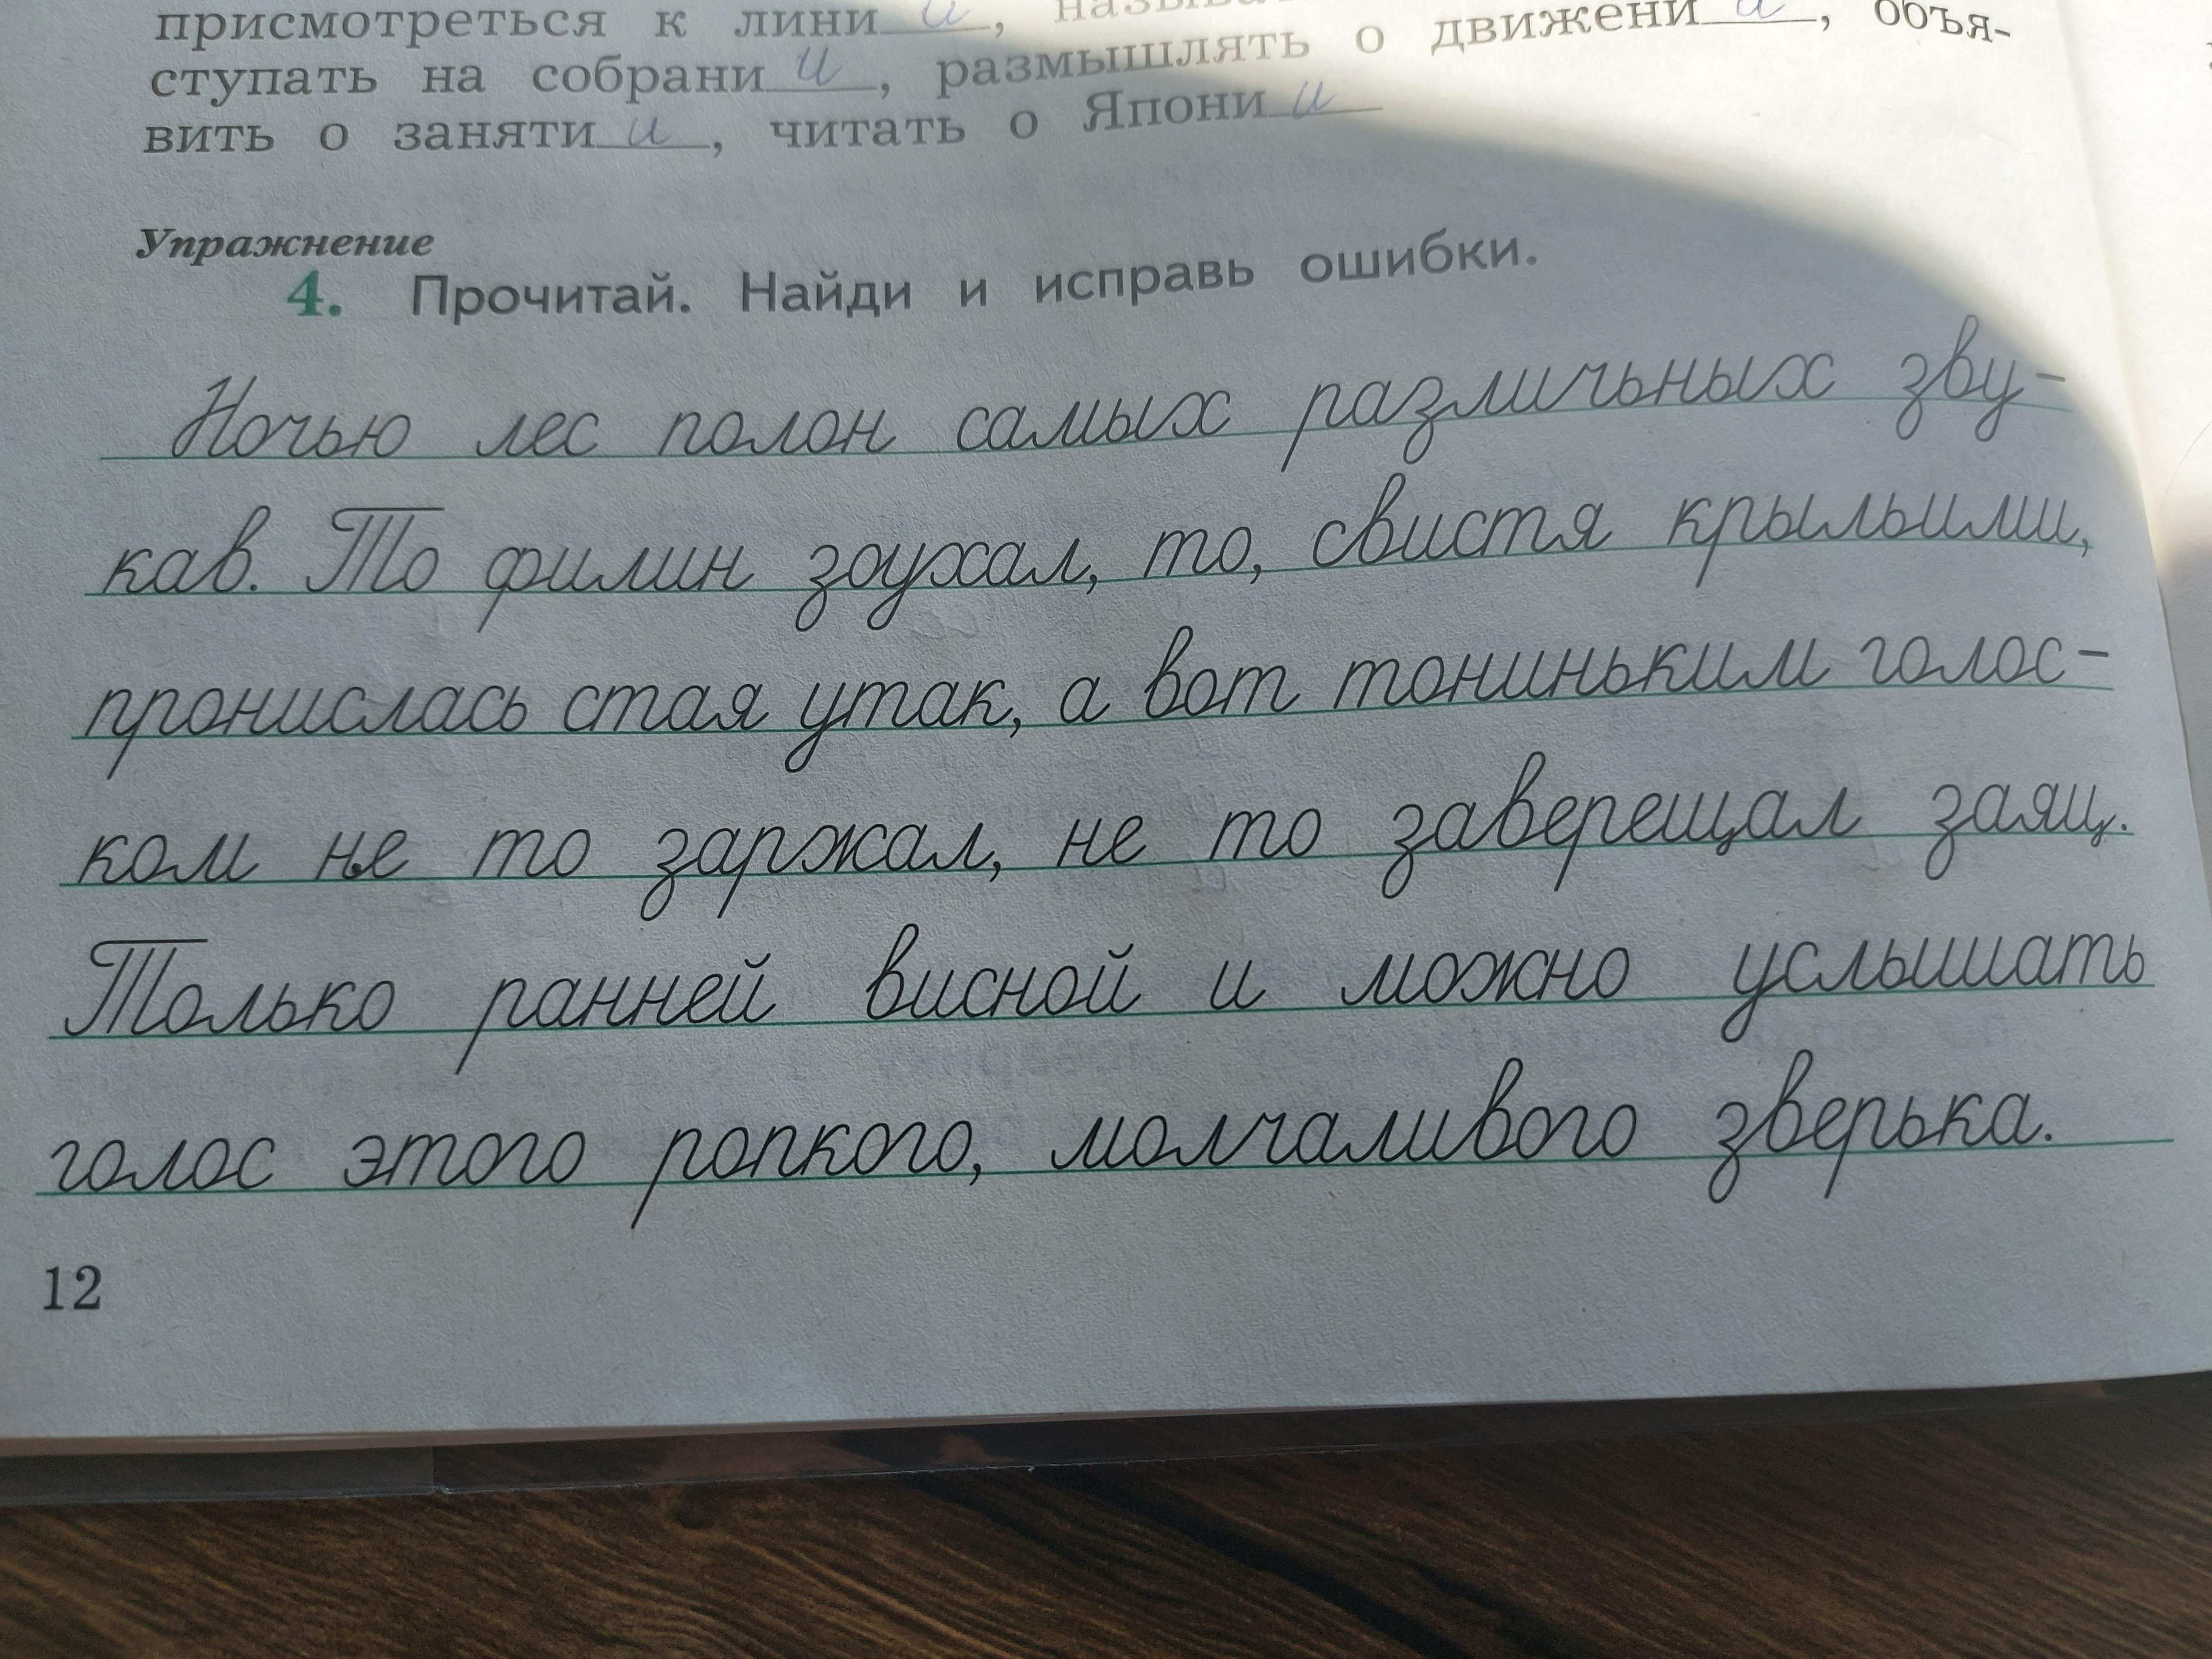 присмотреться к лини и,
ступать на собрани и, размышлять о движени и, объя-
вить о заняти и, читать о Япони и
Упражнение
4. Прочитай. Найди и исправь ошибки.
Ночью лес полон самых различьных зву-
кав. То филин зоухал, то, свистя крыльими,
пронислась стая утак, а вот тониньким голос-
ком не то заржал, не то заверещал заяц.
Только ранней висной и можно услышать
голос этого ропкого, молчаливого зверька.
12